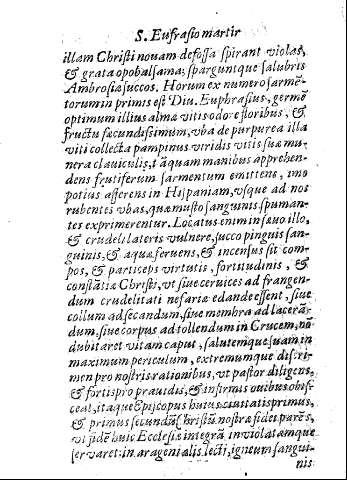 S. Eufrasio martir
illam Christi nouam defossa spirant violas,
& grata opobalsama; sparguntque salubris
Ambrosiæ succos. Horum ex numero sarmē-
torum in primis est Diu. Euphrasius, germē
optimum illius alma vitis odore floribus, &
fructu fæcundissimum, vba de purpurea illa
viti collecta pampinus viridis vitis suæ mu-
nera clauiculis, tāquam manibus apprehen-
dens frutiferum sarmentum emittens, imo
potius asserens in Hispaniam, vsque ad nos
rubentes vbas, quæ musto sanguinis spuman-
tes exprimerentur. Locatus enim in sæuo illo,
& crudeli lateris vulnere, succo pinguis san-
guinis, & aquæ feruens, & incensus sit com-
pos, & particeps virtutis, fortitudinis, &
constātiæ Christi, vt siue ceruices ad frangen-
dum crudelitati nefariæ edandæ essent, siue
collum ad secandum, siue membra ad lacerā-
dum, siue corpus ad tollendum in Crucem, nō
dubitaret vitam caput, salutemque suam in
maximum periculum, extremumque discri-
men pro nostris rationibus, vt pastor diligens,
& fortis pro prauidis, & infirmis ouibus obis-
ceat, itaque Episcopus huius ciuitatis primus,
& primus secundū Christū nostræ fidei parēs,
vt fidē huic Ecclesiæ integrā inviolatamque
servaret: in ara genialis lecti, igneum sangui-
nis